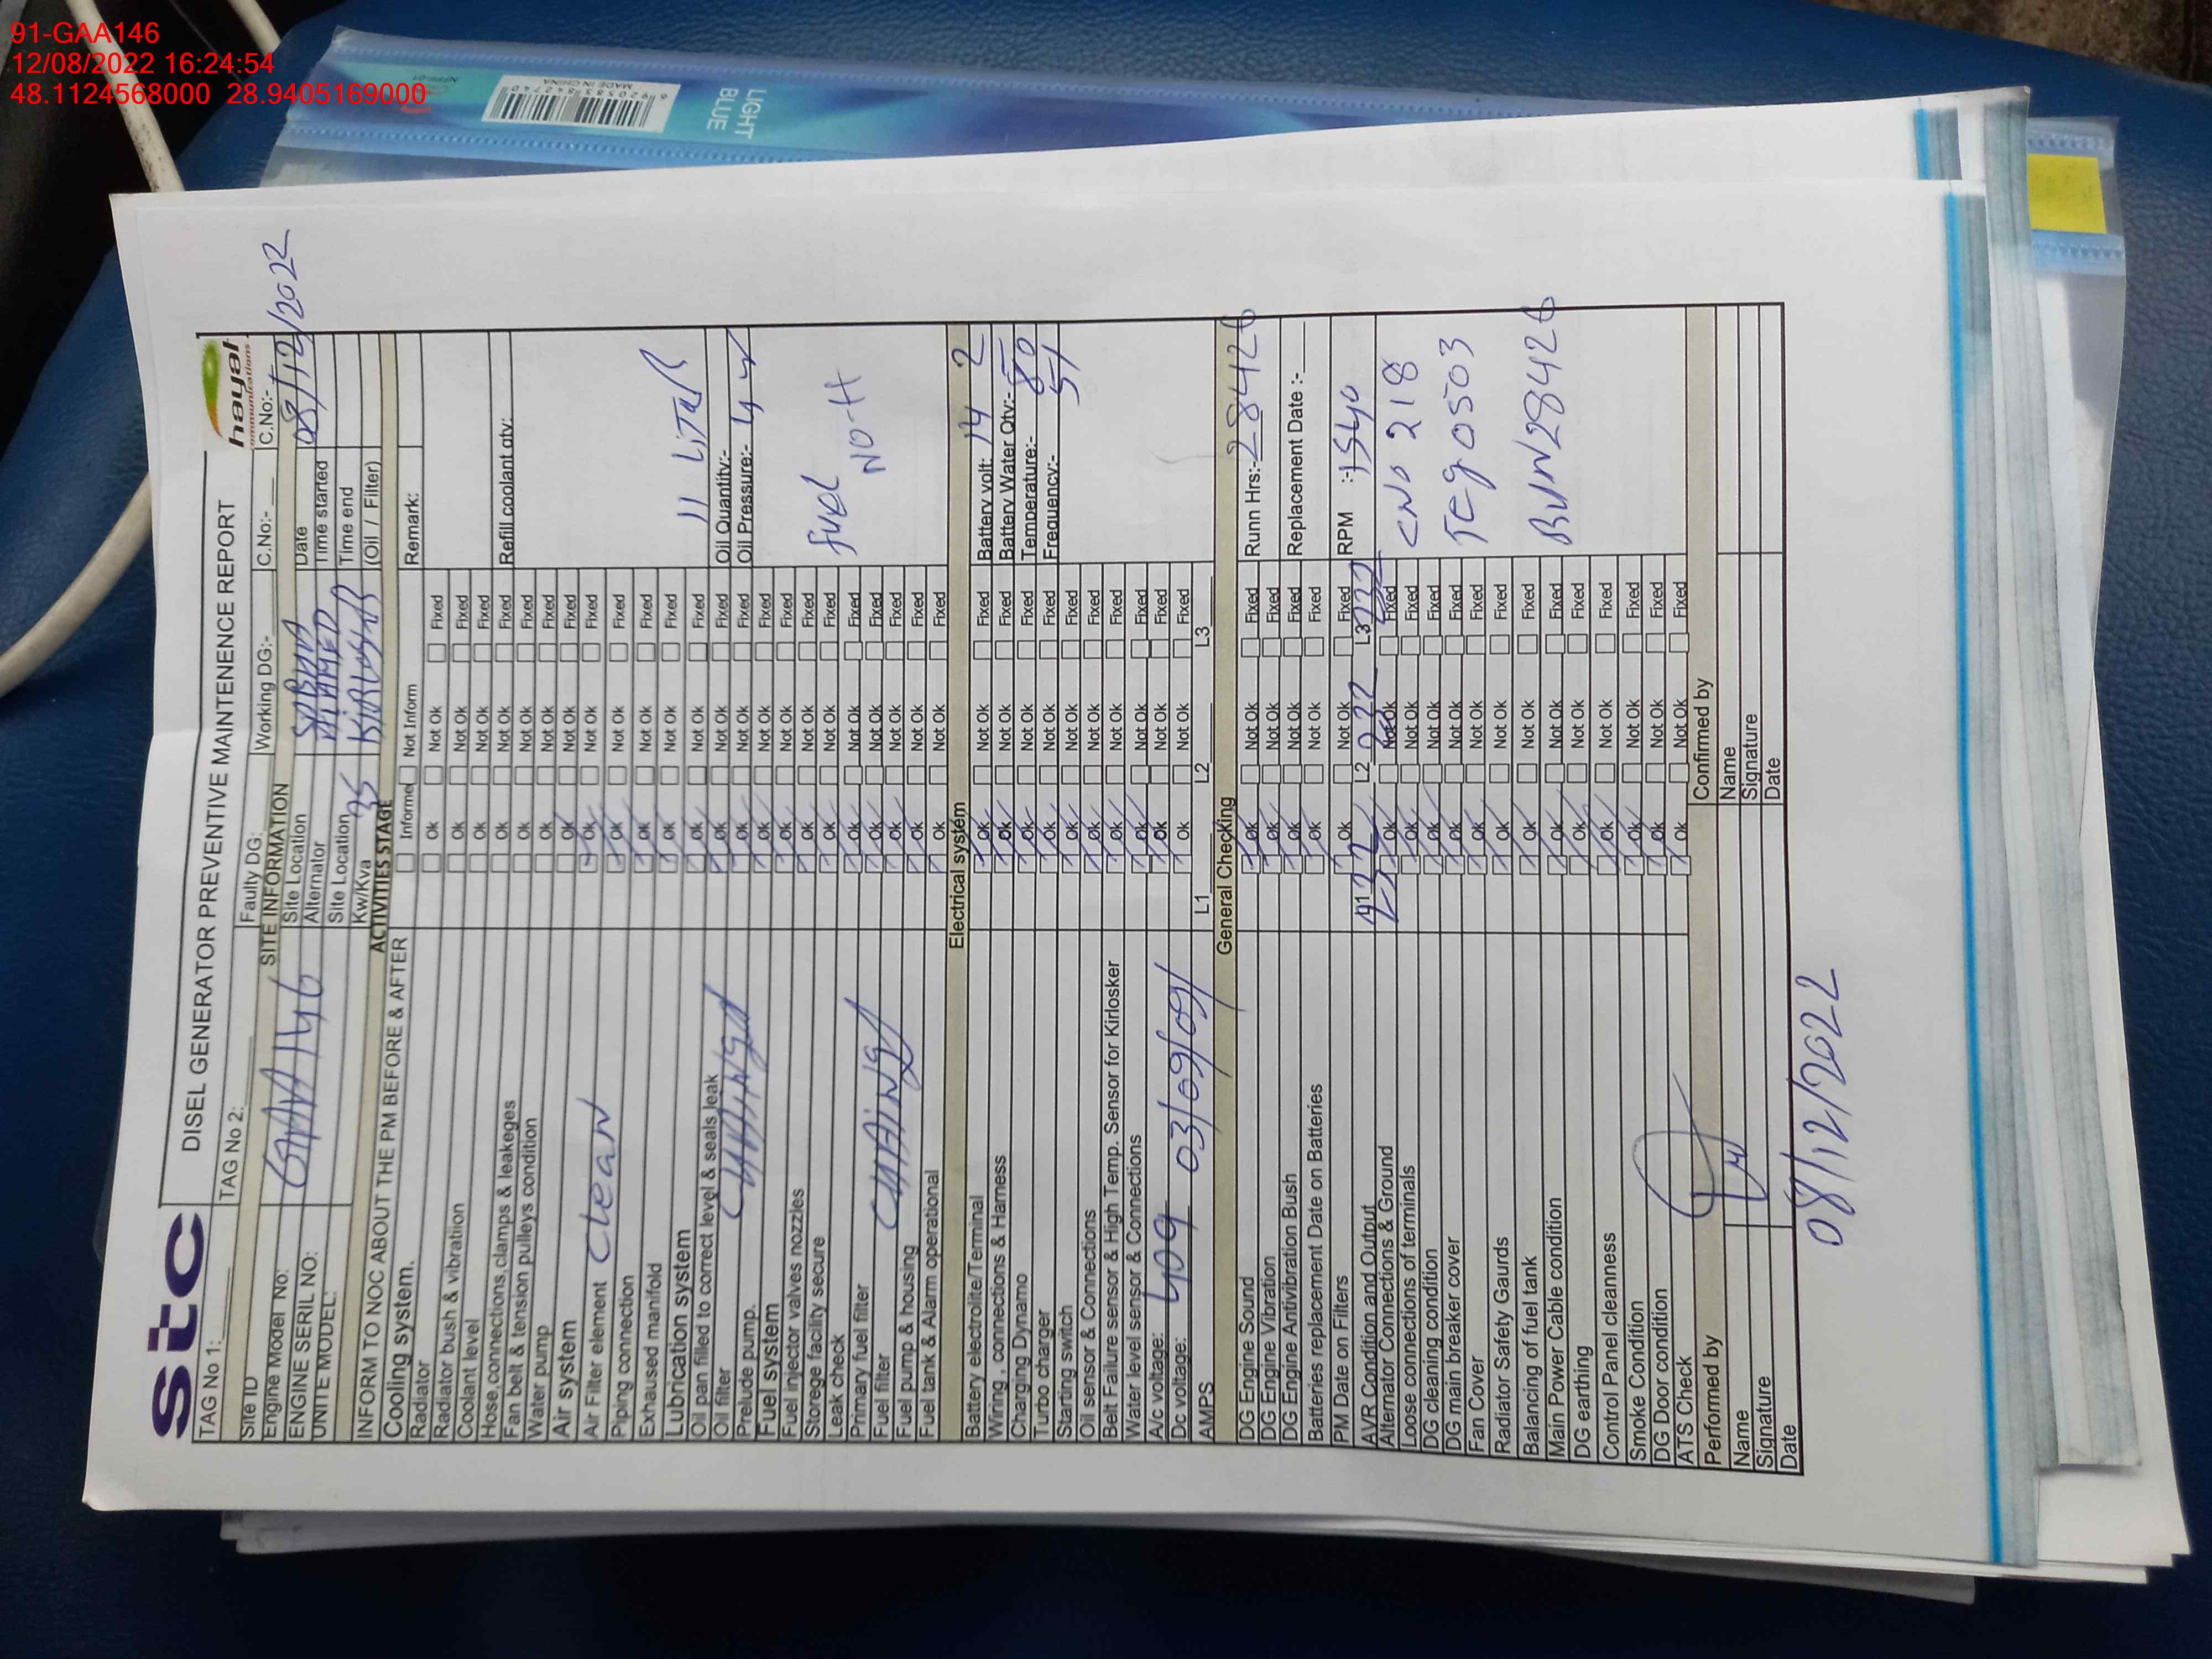 91-GAA146
12/08/2022 16:24:54
48.1124568000 28.9405169000
LIGHT
BLUE
MADE IN CHINA
stc
DISEL GENERATOR PREVENTIVE MAINTENENCE REPORT
hayat
communications
TAG No 1: TAG No 2: Faulty DG: Working DG:- C.No:- C.No:-
SITE INFORMATION
Site ID GAA146
Engine Model No: Site Location Date 08/12/2022
ENGINE SERIL NO: Alternator Time started
UNITE MODEL: Site Location Time end
Kw/Kva 35 (Oil / Filter)
ACTIVITIES STAGE
INFORM TO NOC ABOUT THE PM BEFORE & AFTER Informe Not Inform Remark:
Cooling system.
Radiator Ok Not Ok Fixed
Radiator bush & vibration Ok Not Ok Fixed
Coolant level Ok Not Ok Fixed
Hose,connections,clamps & leakeges Ok Not Ok Fixed Refill coolant qty:
Fan belt & tension pulleys condition Ok Not Ok Fixed
Water pump Ok Not Ok Fixed
Air system Ok Not Ok Fixed
Air Filter element Clean Ok Not Ok Fixed
Piping connection Ok Not Ok Fixed
Exhaused manifold Ok Not Ok Fixed
Lubrication system Ok Not Ok Fixed
Oil pan filled to correct level & seals leak Ok Not Ok Fixed 11 LiTar
Oil filter Ok Not Ok Fixed Oil Quantity:-
Prelude pump. Ok Not Ok Fixed Oil Pressure:-
Fuel system Ok Not Ok Fixed
Fuel injector valves nozzles Ok Not Ok Fixed
Storege facility secure Ok Not Ok Fixed
Leak check Ok Not Ok Fixed Fuel
Primary fuel filter Ok Not Ok Fixed NO-H
Fuel filter Ok Not Ok Fixed
Fuel pump & housing Ok Not Ok Fixed
Fuel tank & Alarm operational Ok Not Ok Fixed
Electrical system
Battery electrolite/Terminal Ok Not Ok Fixed Battery volt: 14 2
Wiring , connections & Harness Ok Not Ok Fixed Battery Water Qty:-
Charging Dynamo Ok Not Ok Fixed Temperature:- 80
Turbo charger Ok Not Ok Fixed Frequency:- 51
Starting switch Ok Not Ok Fixed
Oil sensor & Connections Ok Not Ok Fixed
Belt Failure sensor & High Temp. Sensor for Kirlosker Ok Not Ok Fixed
Water level sensor & Connections Ok Not Ok Fixed
A/c voltage: 409 Ok Not Ok Fixed
Dc voltage: Ok Not Ok Fixed
AMPS 03/09/09/ L1 L2 L3
General Checking
DG Engine Sound Ok Not Ok Fixed Runn Hrs:- 28426
DG Engine Vibration Ok Not Ok Fixed
DG Engine Antivibration Bush Ok Not Ok Fixed Replacement Date :-
Batteries replacement Date on Batteries Ok Not Ok Fixed
PM Date on Filters Ok Not Ok Fixed RPM :- 1540
AVR Condition and Output L2 222 L3
Alternator Connections & Ground Ok Not Ok Fixed
Loose connections of terminals Ok Not Ok Fixed CNo 218
DG cleaning condition Ok Not Ok Fixed
DG main breaker cover Ok Not Ok Fixed 0503
Fan Cover Ok Not Ok Fixed
Radiator Safety Gaurds Ok Not Ok Fixed
Balancing of fuel tank Ok Not Ok Fixed
Main Power Cable condition Ok Not Ok Fixed 28426
DG earthing Ok Not Ok Fixed
Control Panel cleanness Ok Not Ok Fixed
Smoke Condition Ok Not Ok Fixed
DG Door condition Ok Not Ok Fixed
ATS Check Ok Not Ok Fixed
Performed by Confirmed by
Name Name
Signature Signature
Date Date
08/12/2022